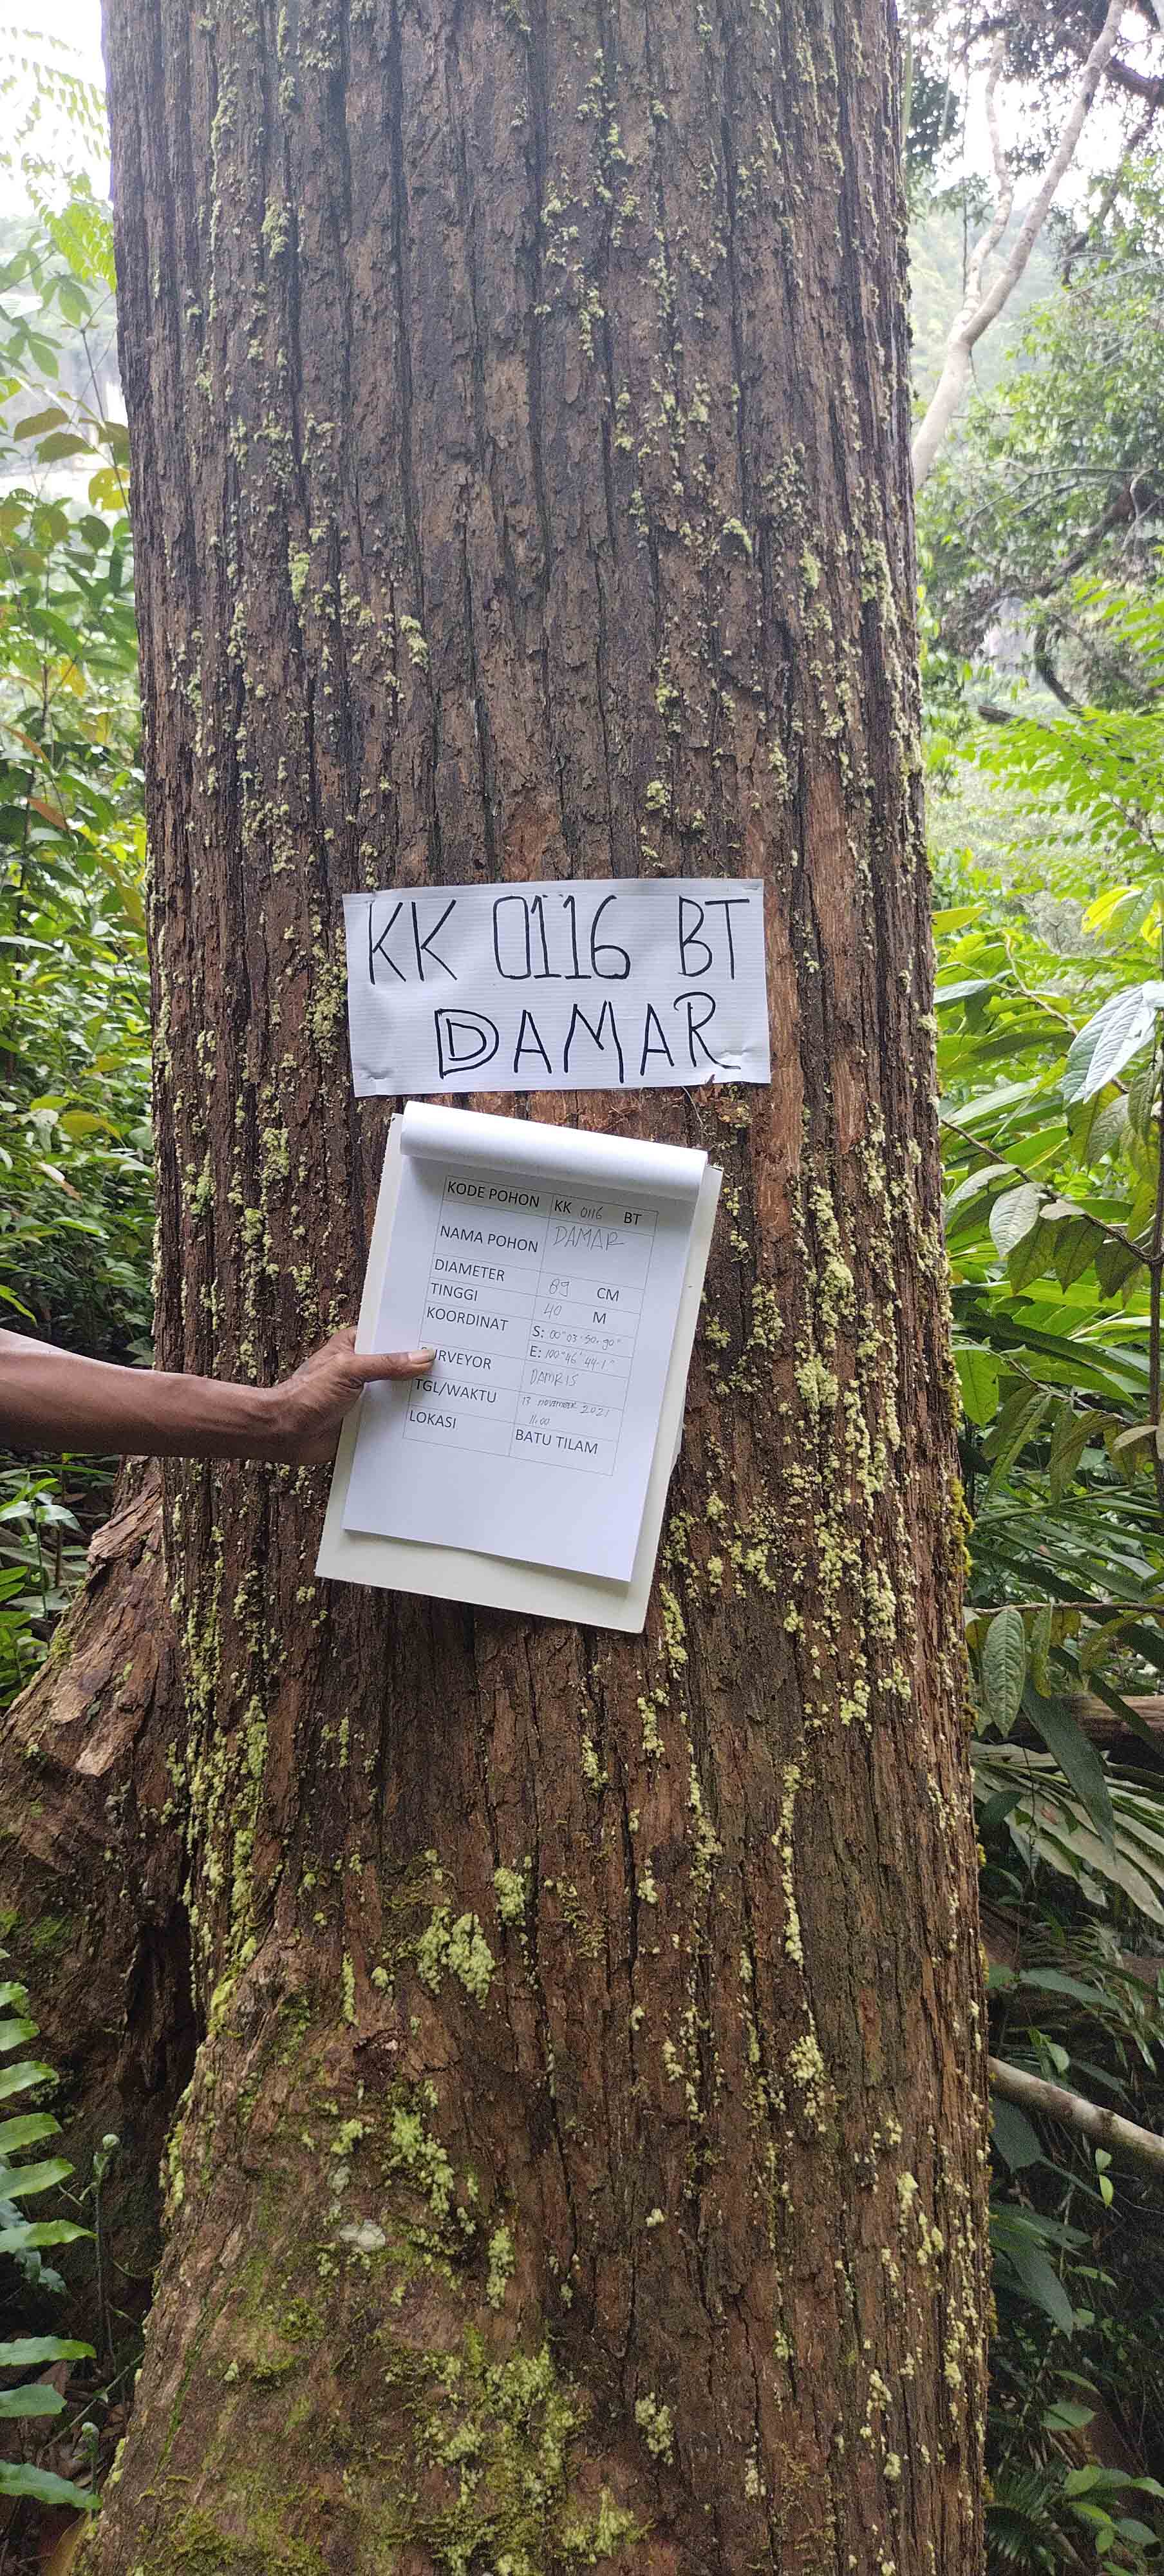 KK 0116 BT
DAMAR
KODE POHON KK 0116 BT
NAMA POHON DAMAR
DIAMETER 89 CM
TINGGI 40 M
KOORDINAT S: 00° 03' 50.90"
E: 100° 46' 44.1"
SURVEYOR DAMRIS
TGL/WAKTU 13 november 2021
11.00
LOKASI BATU TILAM